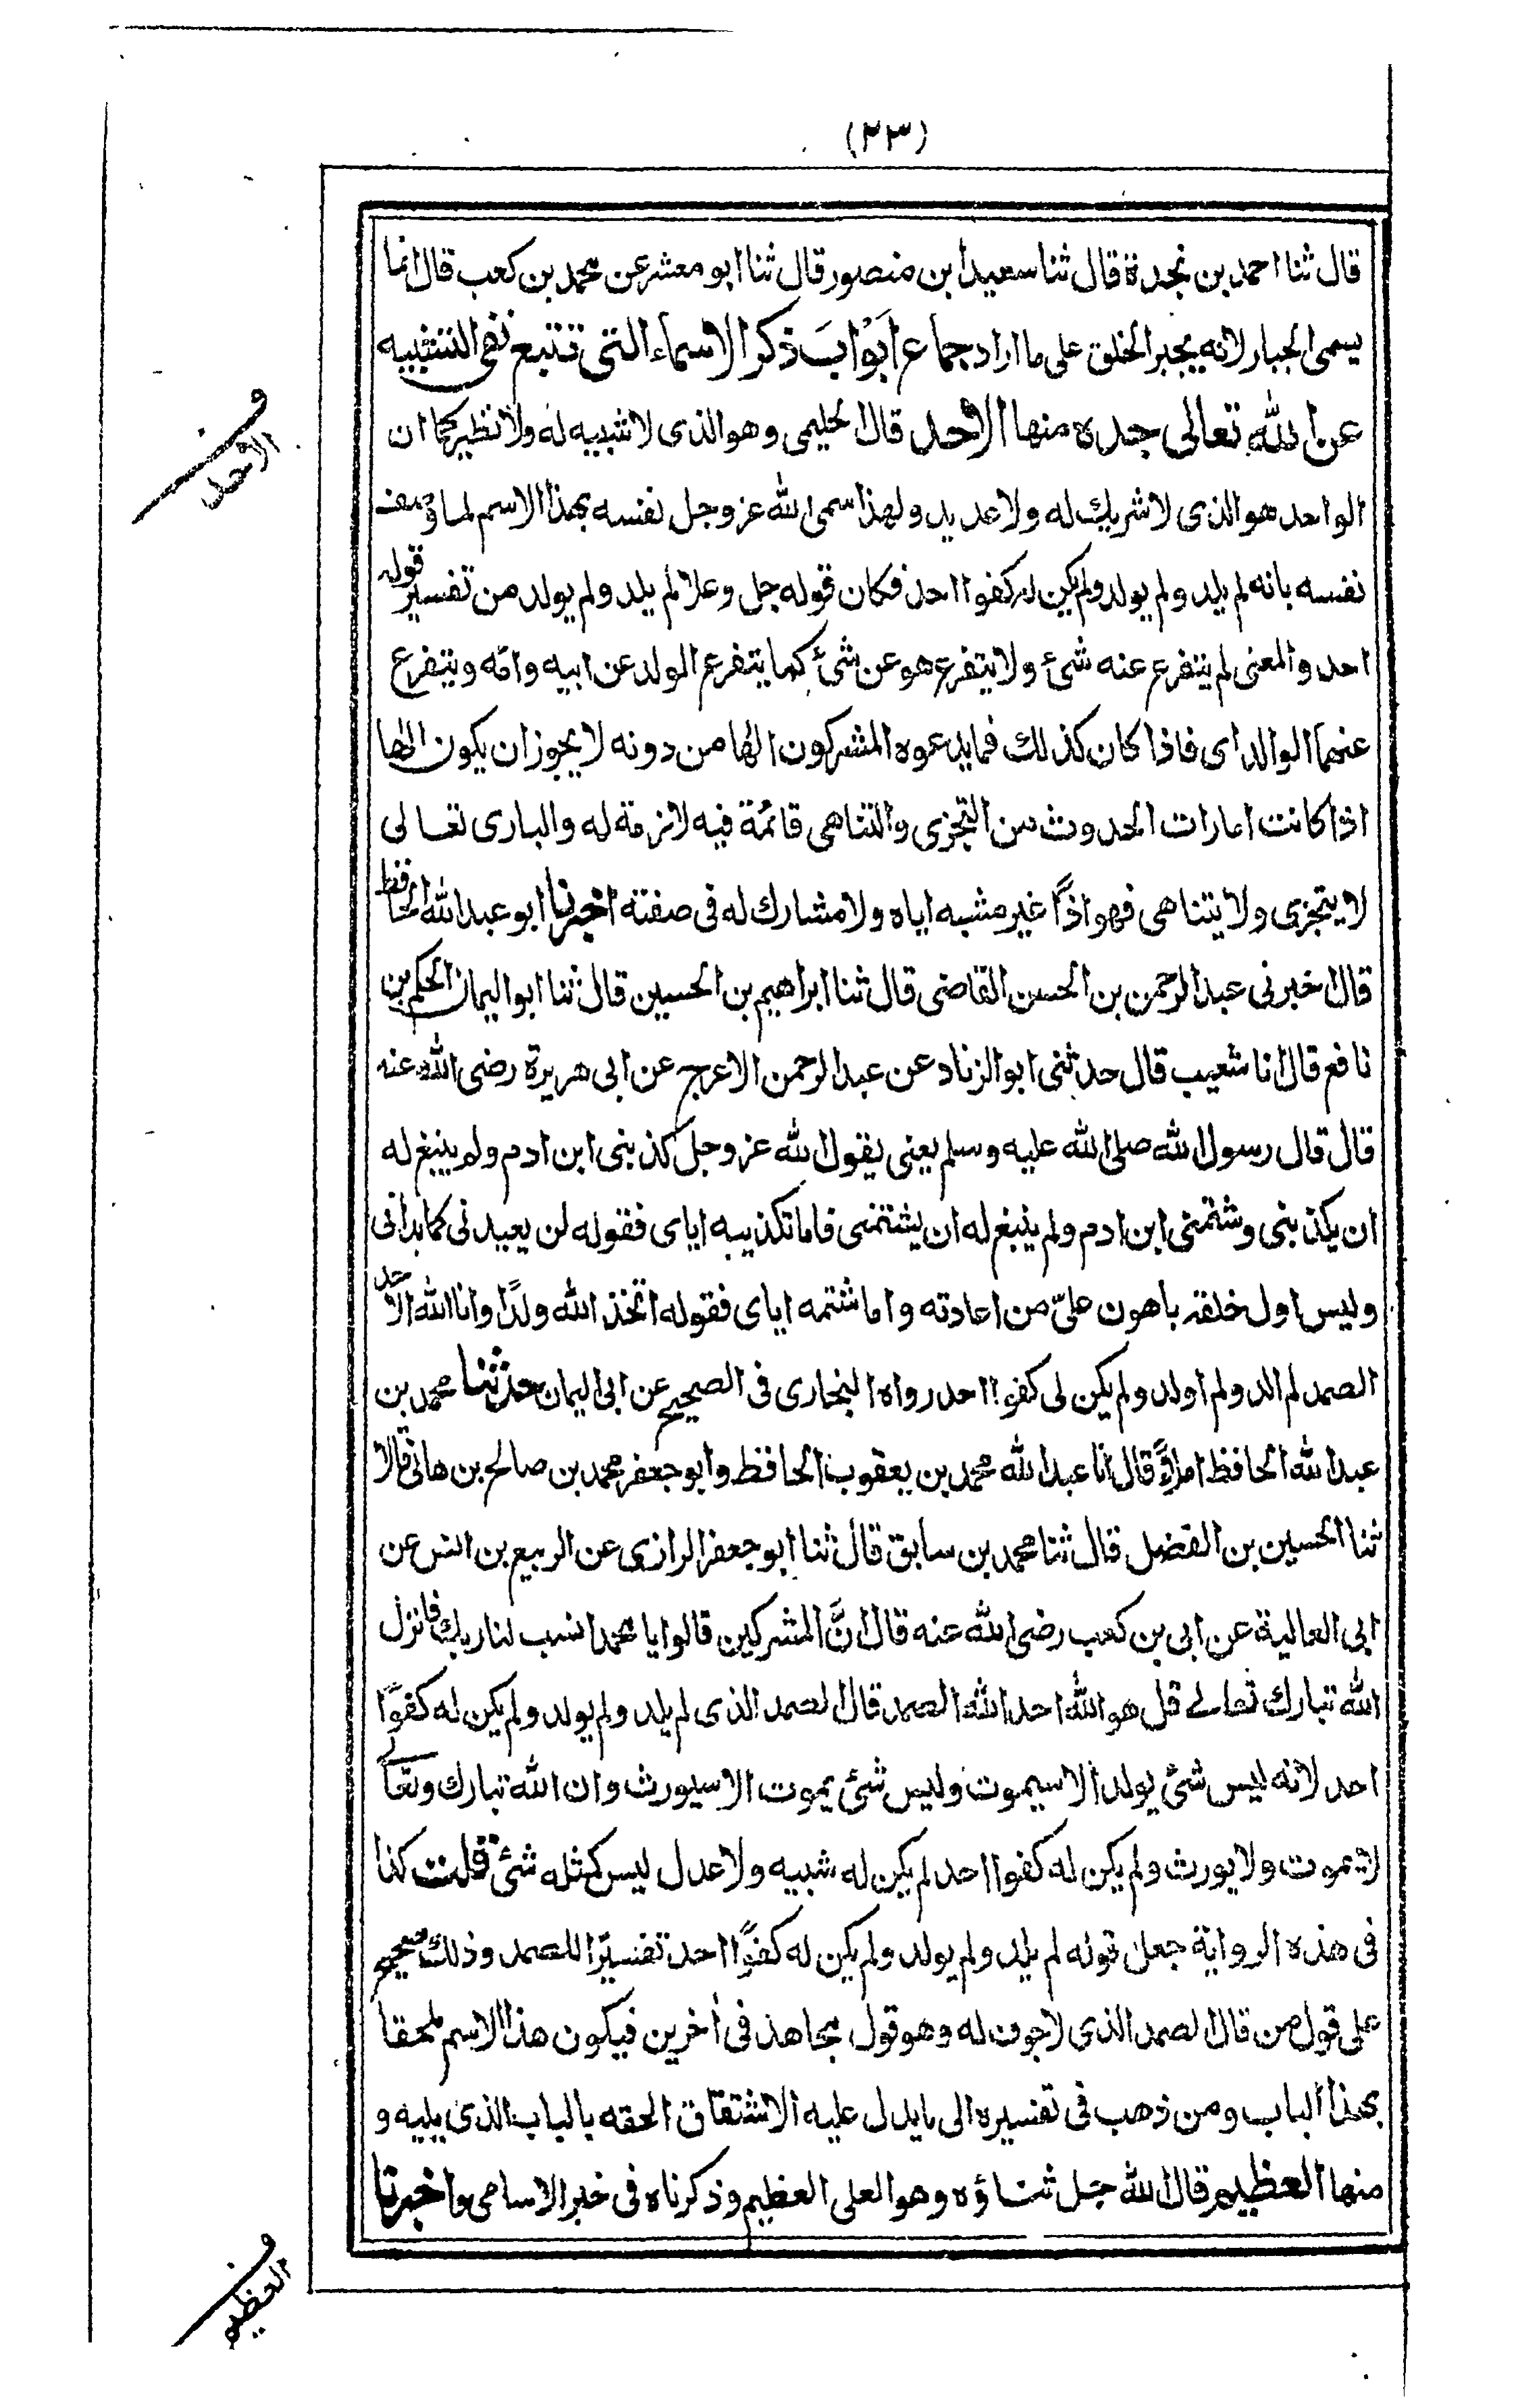 (٢٣)
قال ثنا احمد بن نجدة قال ثنا سعيد ابن منصور قال ثنا ابو معشر عن محمد بن كعب قال انما
يسمى الجبار لانه يجبر الخلق على ما اراد جماع اَبْوابَ ذكر الاسماء التى تتبع نفى التشبيه
عن الله تعالى جده منها الاحد قال الحليمى وهو الذى لا شبيه له ولا نظير كما ان
الواحد هو الذى لا شريك له ولا عديد ولهذا سمى الله عز وجل نفسه بهذا الاسم لما وصف
نفسه بانه لم يلد ولم يولد ولم يكن له كفوا احد فكان قوله جل وعلا لم يلد ولم يولد من تفسير قوله
احد والمعنى لم يتفرع عنه شئ ولا يتفرع هو عن شئ كما يتفرع الولد عن ابيه وامه ويتفرع
عنهما الولد اى فاذا كان كذلك فما يدعوه المشركون الها من دونه لا يجوز ان يكون الها
اذا كانت امارات الحدوث من التجزى والتناهى قائمة فيه لازمة له والبارى تعالى
لا يتجزى ولا يتناهى فهو اذًا غير مشبه اياه ولا مشارك له فى صفته اخبرنا ابو عبد الله الحافظ
قال اخبرنى عبد الرحمن بن الحسن القاضى قال ثنا ابراهيم بن الحسين قال ثنا ابو اليمان الحكم بن
نافع قال انا شعيب قال حدثنى ابو الزناد عن عبد الرحمن الاعرج عن ابى هريرة رضى الله عنه
قال قال رسول الله صلى الله عليه وسلم يعنى يقول الله عز وجل كذبنى ابن ادم ولم ينبغ له
ان يكذبنى وشتمنى ابن ادم ولم ينبغ له ان يشتمنى فاما تكذيبه اياى فقوله لن يعيدنى كما بدانى
وليس اول خلقه باهون علىّ من اعادته واما شتمه اياى فقوله اتخذ الله ولدًا وانا الله الاحد
الصمد لم الد ولم اولد ولم يكن لى كفوا احد رواه البخارى فى الصحيح عن ابى اليمان حدثنا محمد بن
عبد الله الحافظ املاءً قال انا عبد الله محمد بن يعقوب الحافظ وابو جعفر محمد بن صالح بن هانئ قالا
ثنا الحسين بن الفضل قال ثنا محمد بن سابق قال ثنا ابو جعفر الرازى عن الربيع بن انس عن
ابى العالية عن ابى بن كعب رضى الله عنه قال انَّ المشركين قالوا يا محمد انسب لنا ربك فانزل
الله تبارك تعالے قل هو الله احد الله الصمد قال الصمد الذى لم يلد ولم يولد ولم يكن له كفوًا
احد لانه ليس شئ يولد الا سيموت وليس شئ يموت الا سيورث وان الله تبارك وتعالے
لا يموت ولا يورث ولم يكن له كفوا احد لم يكن له شبيه ولا عدل ليس كمثله شئ قلت كذا
فى هذه الرواية جعل قوله لم يلد ولم يولد ولم يكن له كفوًا احد تفسيرًا للصمد وذلك صحيح
على قول من قال الصمد الذى لا جوف له وهو قول مجاهد فى اخرين فيكون هذا الاسم ملحقا
بهذا الباب ومن ذهب فى تفسيره الى ما يدل عليه الاشتقاق الحقه بالباب الذى يليه و
منها العظيم قال الله جل ثناؤه وهو العلى العظيم وذكرناه فى خبر الاسامى واخبرنا
الاحد
العظيم